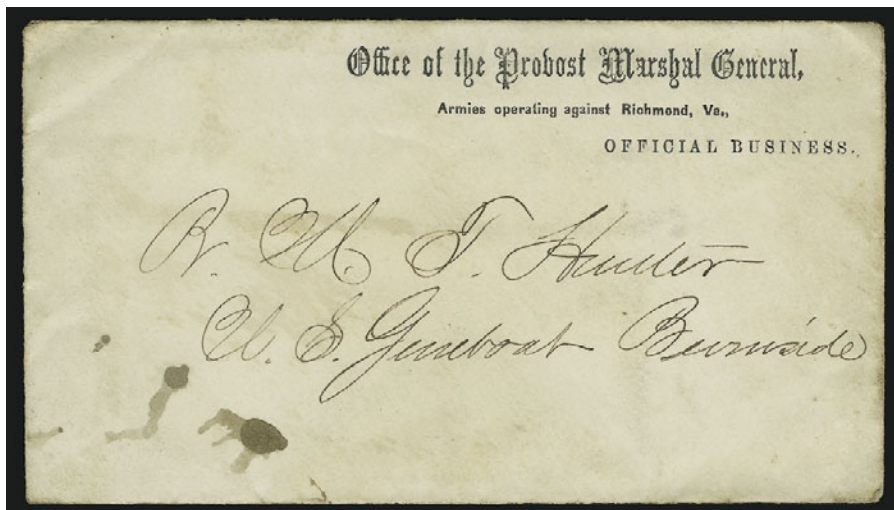 Office of the Provost Marshal General,
Armies operating against Richmond, Va.,
OFFICIAL BUSINESS.
R. M. T. Hunter
U. S. Gunboat Burnside